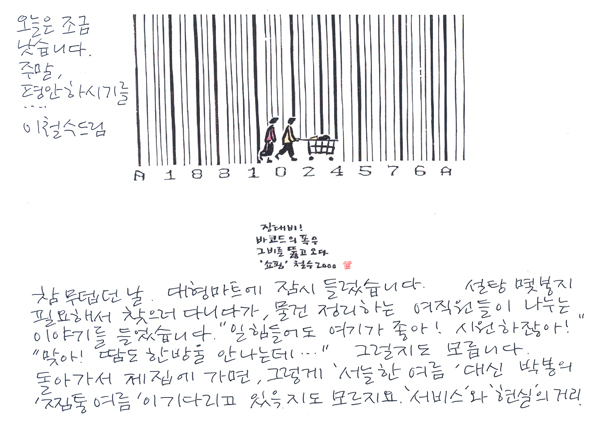 오늘은 조금
낫습니다.
주말,
평안하시기를
....
이철수드림
A 18831024576A
장대비!
바코드의 폭우
그 비를 뚫고 오다
'쇼핑' 철수2000
참 무덥던 날. 대형마트에 잠시 들렀습니다. 설탕 몇봉지
필요해서 찾으러 다니다가, 물건 정리하는 여직원들이 나누는
이야기를 들었습니다. "일힘들어도 여기가 좋아! 시원하잖아!"
"맞아! 땀도 한방울 안나는데…" 그럴지도 모릅니다.
돌아가서 제집에 가면, 그렇게 '서늘한 여름' 대신 박봉의
'찜통여름'이 기다리고 있을지도 모르지요. '서비스'와 '현실'의 거리.